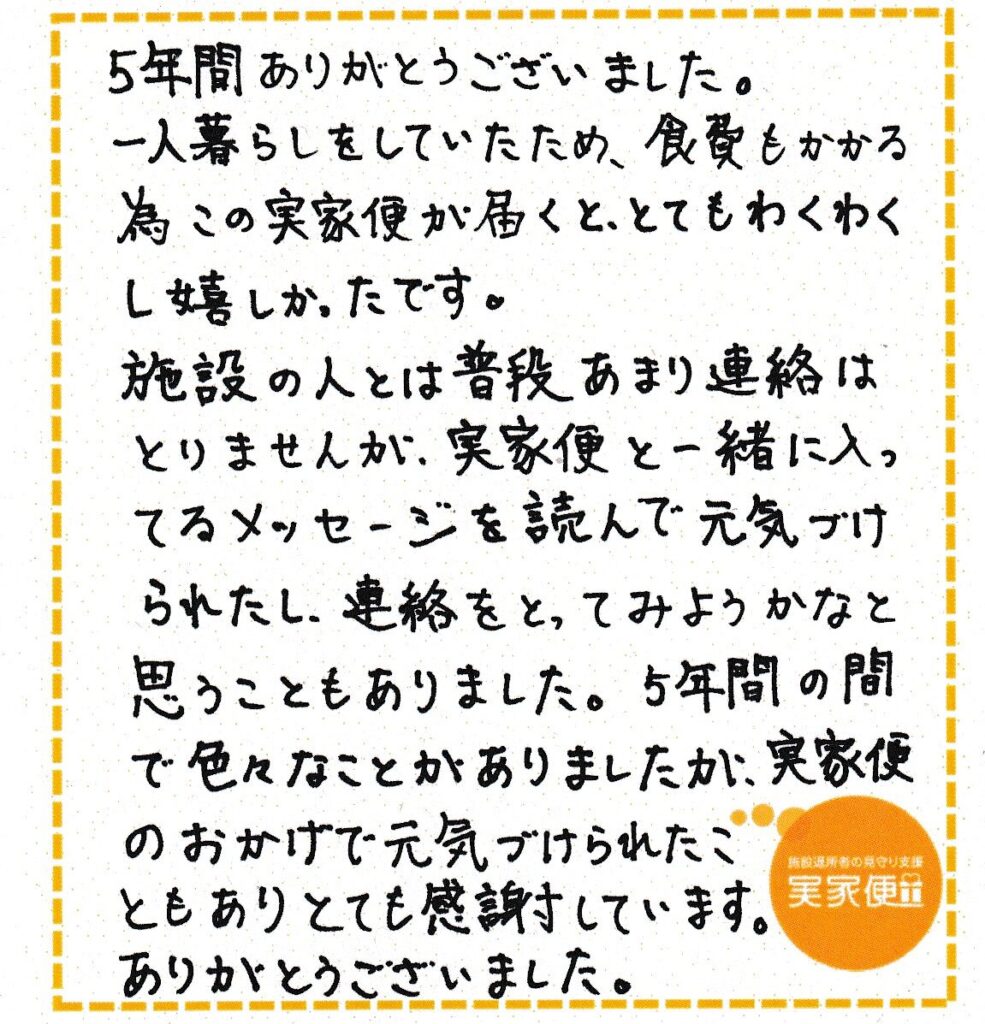 5年間ありがとうございました。
一人暮らしをしていたため、食費もかかる
為この実家便が届くと、とてもわくわく
し嬉しかったです。
施設の人とは普段あまり連絡は
とりませんが、実家便と一緒に入っ
てるメッセージを読んで元気づけ
られたし、連絡をとってみようかなと
思うこともありました。5年間の間
で色々なことがありましたが、実家便
のおかげで元気づけられたこ
ともありとても感謝しています。
ありがとうございました。
施設退所者の見守り支援
実家便